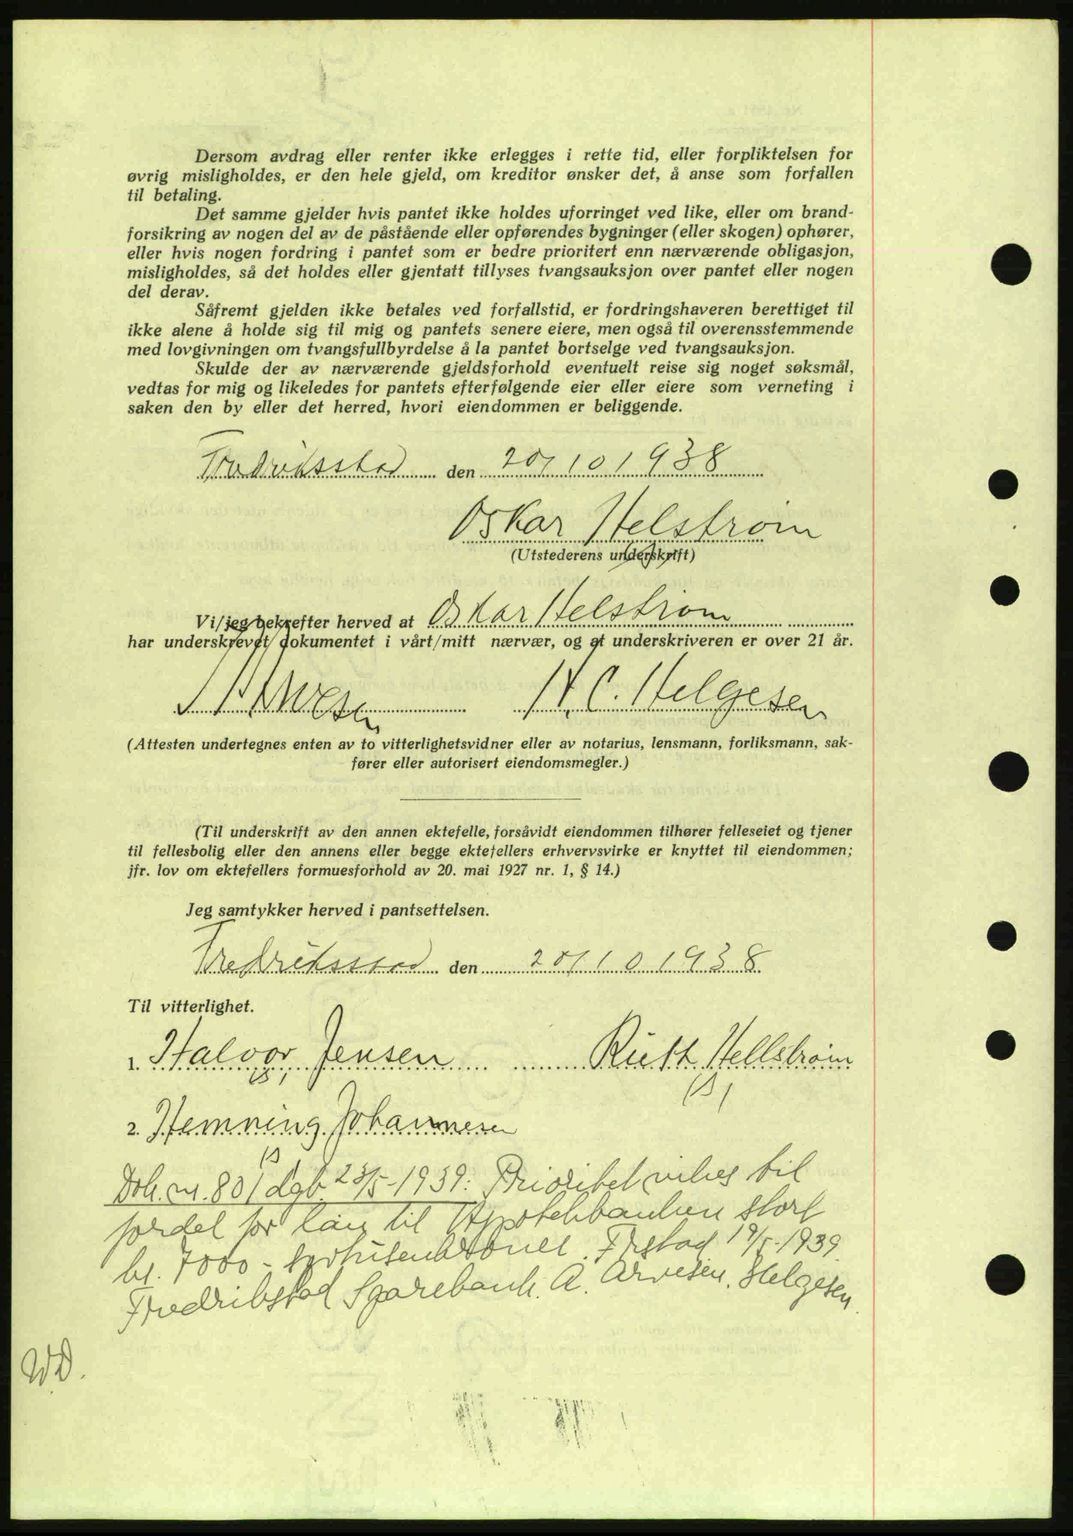 Dersom avdrag eller renter ikke erlegges i rette tid, eller forpliktelsen for
øvrig misligholdes, er den hele gjeld, om kreditor ønsker det, å anse som forfallen
til betaling.
Det samme gjelder hvis pantet ikke holdes uforringet ved like, eller om brand-
forsikring av nogen del av de påstående eller opførendes bygninger (eller skogen) ophører,
eller hvis nogen fordring i pantet som er bedre prioritert enn nærværende obligasjon,
misligholdes, så det holdes eller gjentatt tillyses tvangsauksjon over pantet eller nogen
del derav.
Såfremt gjelden ikke betales ved forfallstid, er fordringshaveren berettiget til
ikke alene å holde sig til mig og pantets senere eiere, men også til overensstemmende
med lovgivningen om tvangsfullbyrdelse å la pantet bortselge ved tvangsauksjon.
Skulde der av nærværende gjeldsforhold eventuelt reise sig noget søksmål,
vedtas for mig og likeledes for pantets efterfølgende eier eller eiere som verneting i
saken den by eller det herred, hvori eiendommen er beliggende.
Fredriksstad den 20/10 1938
Oskar Helstrøm
(Utstederens underskrift)
Vi/jeg bekrefter herved at Oskar Helstrøm
har underskrevet dokumentet i vårt/mitt nærvær, og at underskriveren er over 21 år.
A. Arvesen H. C. Helgesen
(Attesten undertegnes enten av to vitterlighetsvidner eller av notarius, lensmann, forliksmann, sak-
fører eller autorisert eiendomsmegler.)
(Til underskrift av den annen ektefelle, forsåvidt eiendommen tilhører felleseiet og tjener
til fellesbolig eller den annens eller begge ektefellers erhvervsvirke er knyttet til eiendommen;
jfr. lov om ektefellers formuesforhold av 20. mai 1927 nr. 1, § 14.)
Jeg samtykker herved i pantsettelsen.
Fredriksstad den 20/10 1938
Til vitterlighet.
1. Halvor Jensen Ruth Hellstrøm
(s) (s)
2. Hemning Johannesen
(s)
Dok. nr. 801 dgb. 23/5-1939: Prioritet vikes til
fordel for lån til Hypotekbanken stort
kr. 7000 - syvtusenkroner. Frstad 19/5-1939
Fredrikstad Sparebank. A. Arvesen. Helgesen.
WD.